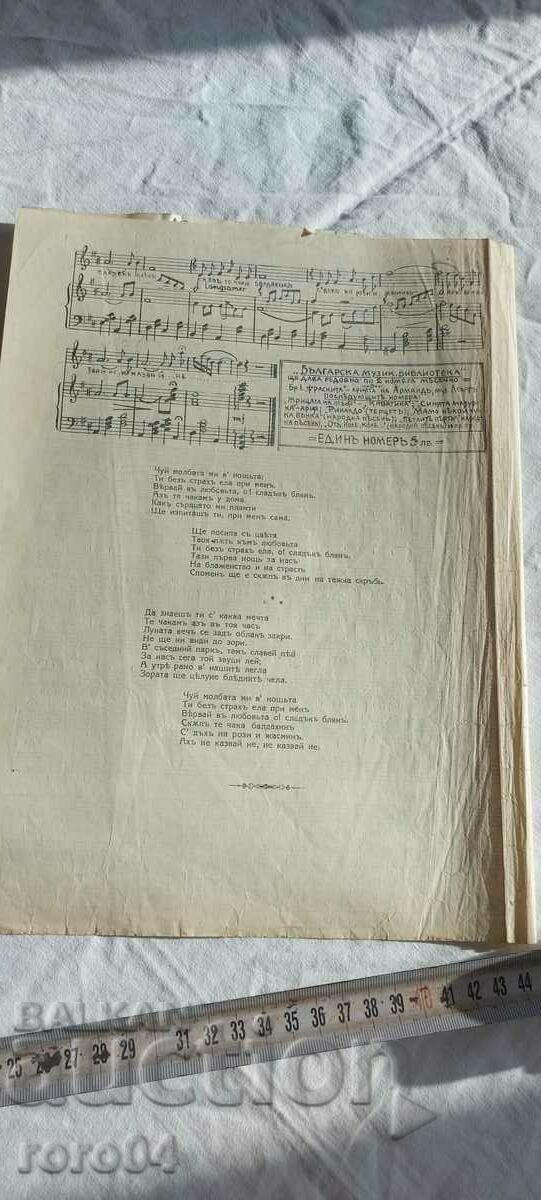 Longiamer
„БЪЛГАРСКА МУЗИК. БИБЛИОТЕКА"
ЩЕ ДАВА РЕДОВНО ПО 2 НОМЕРА МѢСЕЧНО =
ПОСЛѢДУЮЩИТѢ НОМЕРА:
= ЕДИНЪ НОМЕРЪ 5 ЛВ. =
Чуй молбата ми в' нощьта;
Ти безъ страхъ ела при менъ.
Вѣрвай въ любовьта, о! сладъкъ блянъ.
Азъ те чакамъ у дома.
Какъ сърдцето ми пламти
Ще изпиташъ ти, при менъ сама.
Ще посипа съ цвѣтя
Твоя пѫть къмъ любовьта
Ти безъ страхъ ела, о! сладъкъ блянъ.
Тази първа нощь за насъ
На блаженство и на страсть
Споменъ ще е скѫпъ въ дни на тежка скръбь.
* * *
Да знаешъ ти с' каква мечта
Те чакамъ азъ въ тоя часъ
Луната вечъ се задъ облакъ закри.
Не ще ни види до зори.
В' съседний паркъ, тамъ славей пѣй
За насъ сега той звуци лей;
А утрѣ рано в' нашитѣ легла
Зората ще цѣлуне блѣднитѣ чела.
Чуй молбата ми в' нощьта
Ти безъ страхъ ела при менъ
Вѣрвай въ любовьта о! сладъкъ блянъ.
Скѫпъ те чака балдахинъ
С' дъхъ на рози и жасминъ.
Ахъ не казвай не, не казвай не.
25 26 27 28 29 31 32 33 34 35 36 37 38 39 40 41 42 43 44
BALKAN
auction
roro04